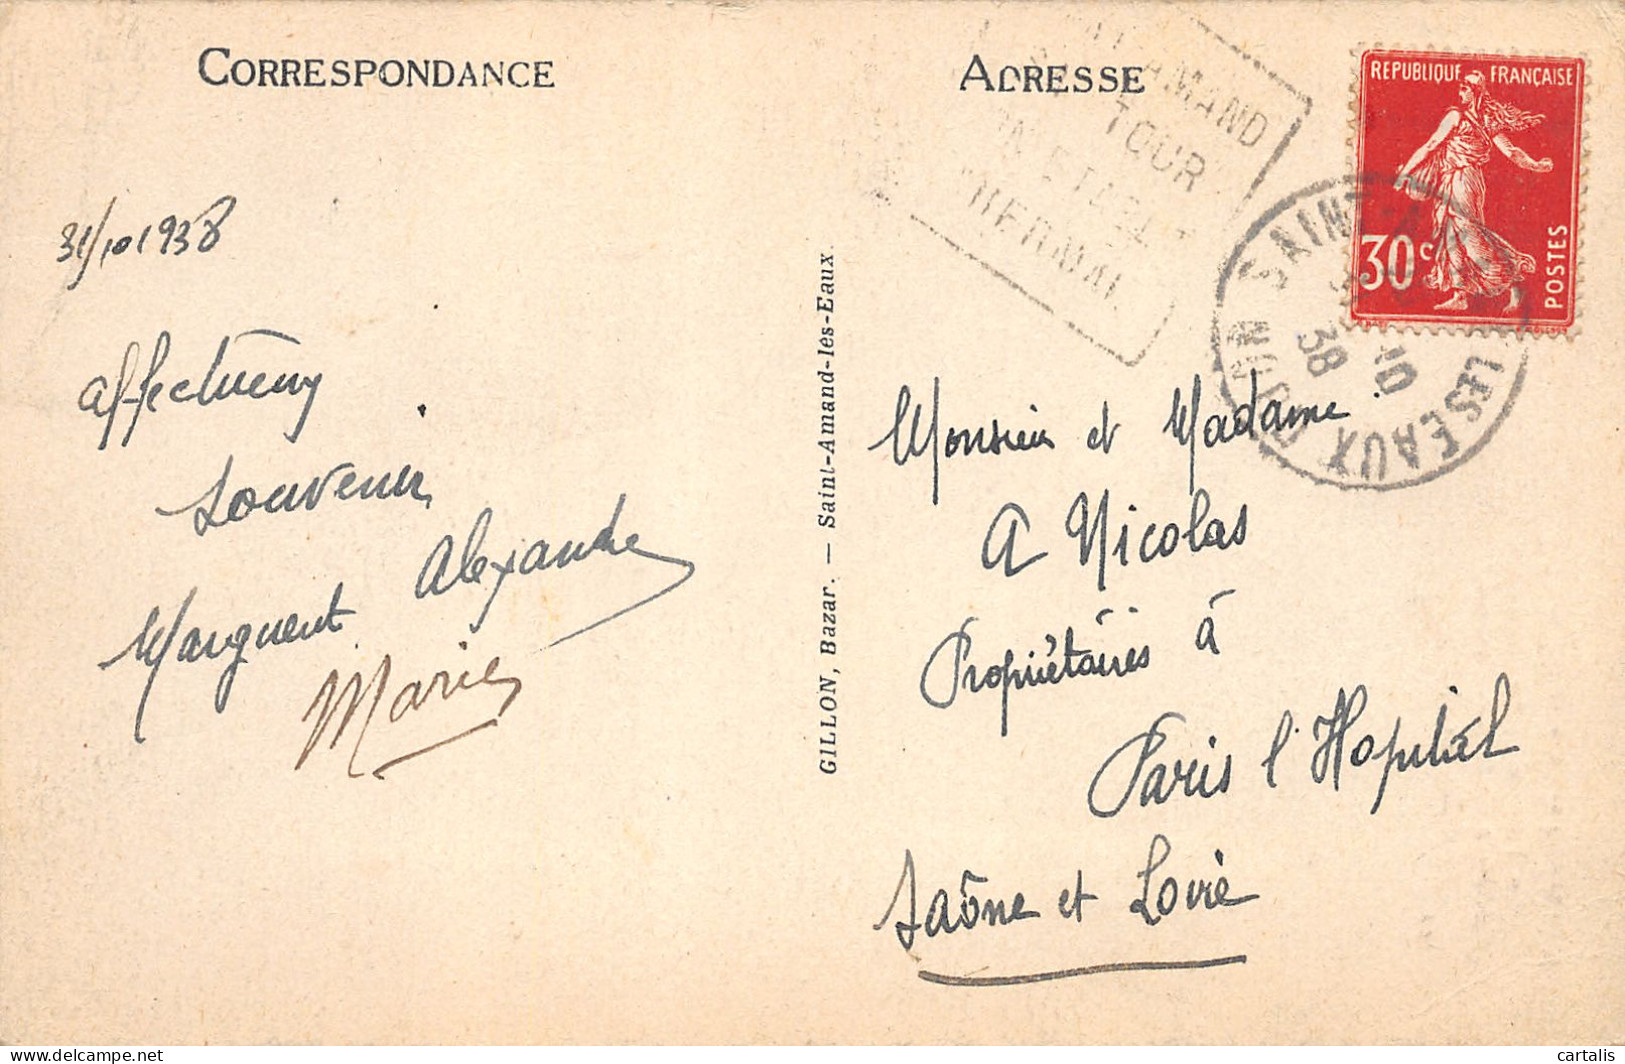 CORRESPONDANCE
31/10 1938
affectueux
Souvenir
Alexandre
Marguerit
Marie
GILLON, Bazar. — Saint-Amand-les-Eaux
ADRESSE
AMAND
TOUR
THERMAL
REPUBLIQUE FRANÇAISE
30c
POSTES
SAINT-A LES EAUX
10
38
Monsieur et Madame
A Nicolas
Propriétaires à
Paris l'Hopital
Saône et Loire
cartalis